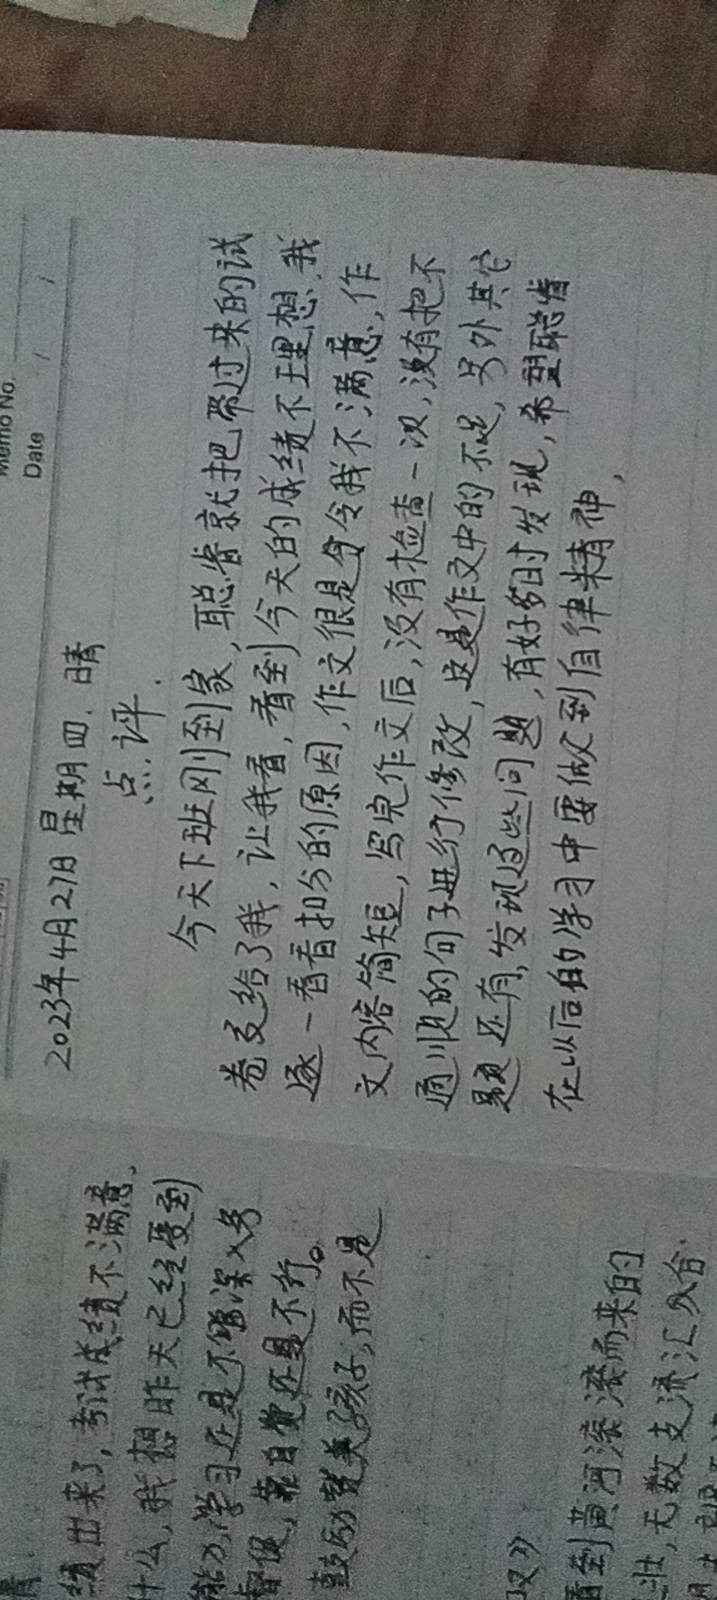 Memo No.
Date / /
2023年4月27日 星期四、晴
点评.
今天下班刚到家,聪睿就把带过来的试
卷交给了我,让我看,看到今天的成绩不理想,我
逐一看看扣分的原因,作文很是令我不满意,作
文内容简短,写完作文后,没有检查一次,没有把不
通顺的句子进行修改,这是作文中的不足,另外其它
题还有,发现这些问题,有好多时发现,希望聪睿
在以后的学习中要做到自律精神,
绩出来了,考试成绩不满意.
什么,我想昨天已经受到
能力,学习还是不能深入务
督促,靠自觉还是不行。
鼓励赞美孩子,而不是
看到黄河滚滚而来的
壮,无数支流汇合